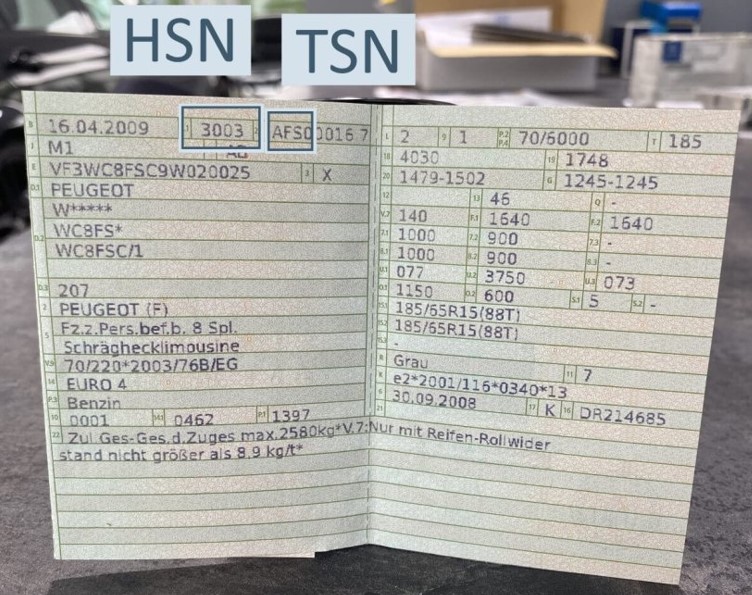 HSN TSN
B 16.04.2009 3003 AFS00016 7
J M1 AB
E VF3WC8FSC9W020025 3 X
D.1 PEUGEOT
W*****
D.2 WC8FS*
WC8FSC/1
D.3 207
2 PEUGEOT (F)
5 Fz.z.Pers.bef.b. 8 Spl.
Schräghecklimousine
V.9 70/220*2003/76B/EG
14 EURO 4
P.3 Benzin
10 0001 14.1 0462 P.1 1397
L 2 9 1 P.2 P.4 70/6000 T 185
18 4030 19 1748
20 1479-1502 G 1245-1245
12 13 46 Q -
V.7 140 F.1 1640 F.2 1640
7.1 1000 7.2 900 7.3 -
8.1 1000 8.2 900 8.3 -
U.1 077 U.2 3750 U.3 073
O.1 1150 O.2 600 S.1 5 S.2 -
15.1 185/65R15(88T)
15.2 185/65R15(88T)
15.3 -
R Grau 11 7
K e2*2001/116*0340*13
6 30.09.2008 17 K 16 DR214685
21
22 Zul Ges-Ges.d.Zuges max.2580kg*V.7:Nur mit Reifen-Rollwider
stand nicht größer als 8,9 kg/t*